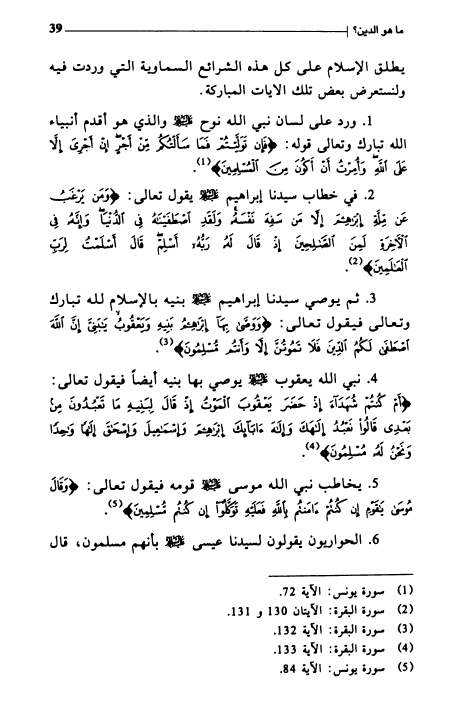 ما هو الدين؟ 39
يطلق الإسلام على كل هذه الشرائع السماوية التي وردت فيه
ولنستعرض بعض تلك الايات المباركة.
1. ورد على لسان نبي الله نوح ﷺ والذي هو أقدم أنبياء
الله تبارك وتعالى قوله: ﴿فَإِن تَوَلَّيْتُمْ فَمَا سَأَلْتُكُم مِّنْ أَجْرٍ إِنْ أَجْرِيَ إِلَّا
عَلَى اللَّهِ وَأُمِرْتُ أَنْ أَكُونَ مِنَ الْمُسْلِمِينَ﴾(1).
2. في خطاب سيدنا إبراهيم ﷺ يقول تعالى: ﴿وَمَن يَرْغَبُ
عَن مِّلَّةِ إِبْرَاهِيمَ إِلَّا مَن سَفِهَ نَفْسَهُ وَلَقَدِ اصْطَفَيْنَاهُ فِي الدُّنْيَا وَإِنَّهُ فِي
الْآخِرَةِ لَمِنَ الصَّالِحِينَ إِذْ قَالَ لَهُ رَبُّهُ أَسْلِمْ قَالَ أَسْلَمْتُ لِرَبِّ
الْعَالَمِينَ﴾(2).
3. ثم يوصي سيدنا إبراهيم ﷺ بنيه بالإسلام لله تبارك
وتعالى فيقول تعالى: ﴿وَوَصَّى بِهَا إِبْرَاهِيمُ بَنِيهِ وَيَعْقُوبُ يَا بَنِيَّ إِنَّ اللَّهَ
اصْطَفَى لَكُمُ الدِّينَ فَلَا تَمُوتُنَّ إِلَّا وَأَنتُم مُّسْلِمُونَ﴾(3).
4. نبي الله يعقوب ﷺ يوصي بها بنيه أيضاً فيقول تعالى:
﴿أَمْ كُنتُمْ شُهَدَاءَ إِذْ حَضَرَ يَعْقُوبَ الْمَوْتُ إِذْ قَالَ لِبَنِيهِ مَا تَعْبُدُونَ مِن
بَعْدِي قَالُوا نَعْبُدُ إِلَهَكَ وَإِلَهَ آبَائِكَ إِبْرَاهِيمَ وَإِسْمَاعِيلَ وَإِسْحَاقَ إِلَهًا وَاحِدًا
وَنَحْنُ لَهُ مُسْلِمُونَ﴾(4).
5. يخاطب نبي الله موسى ﷺ قومه فيقول تعالى: ﴿وَقَالَ
مُوسَى يَا قَوْمِ إِن كُنتُمْ آمَنتُم بِاللَّهِ فَعَلَيْهِ تَوَكَّلُوا إِن كُنتُم مُّسْلِمِينَ﴾(5).
6. الحواريون يقولون لسيدنا عيسى ﷺ بأنهم مسلمون، قال
(1) سورة يونس: الآية 72.
(2) سورة البقرة: الآيتان 130 و 131.
(3) سورة البقرة: الآية 132.
(4) سورة البقرة: الآية 133.
(5) سورة يونس: الآية 84.